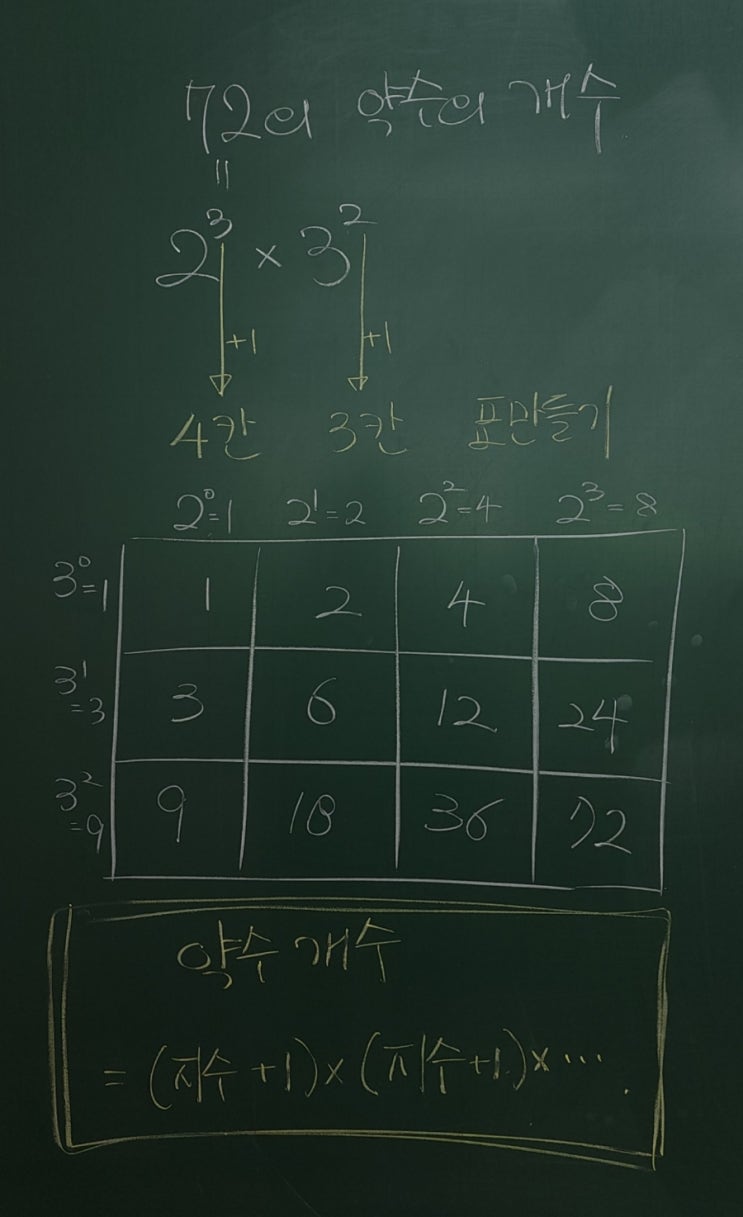 72의 약수의 개수
=
2³ × 3²
+1 +1
4칸 3칸 표만들기
2⁰=1 2¹=2 2²=4 2³=8
3⁰=1 1 2 4 8
3¹=3 3 6 12 24
3²=9 9 18 36 72
약수 개수
= (지수+1)×(지수+1)×….